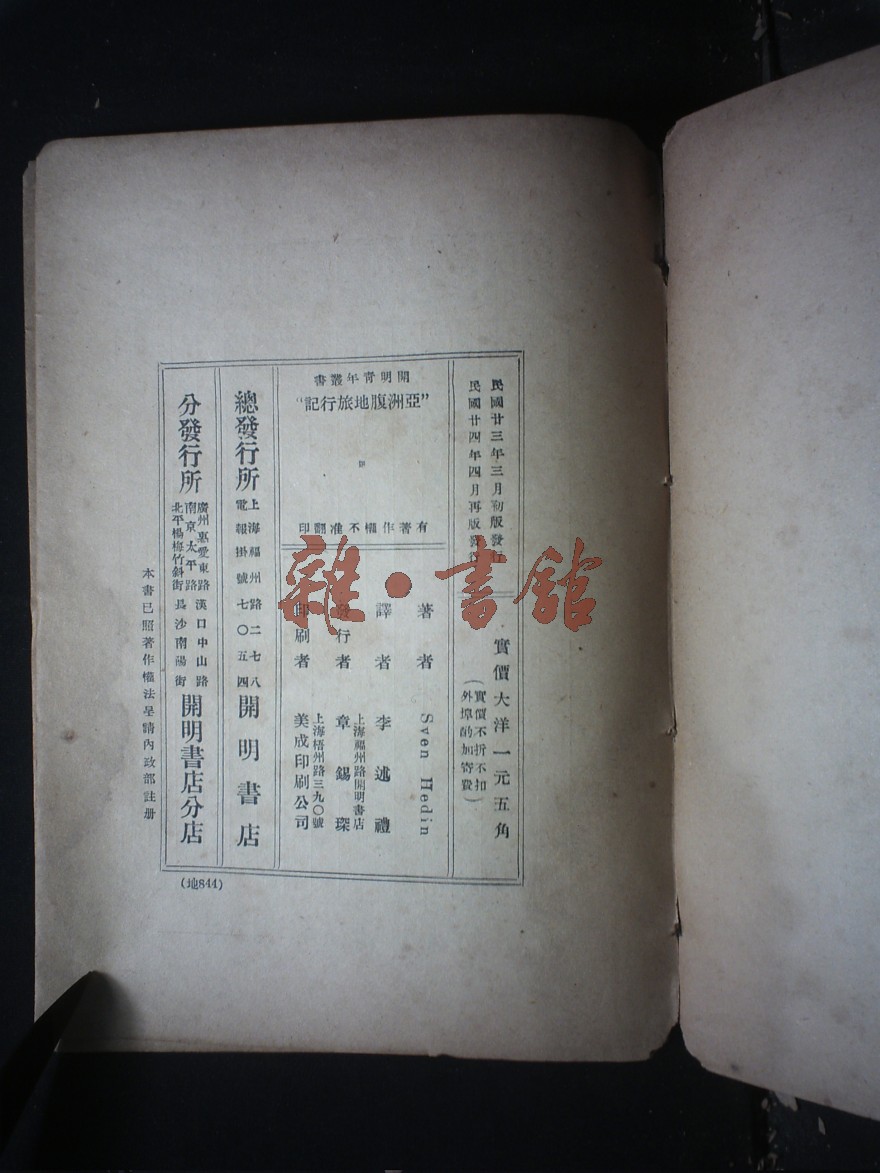 民國廿三年三月初版發行
民國廿四年四月再版發行
實價大洋一元五角
(實價不折不扣
外埠酌加寄費)
開明青年叢書
“亞洲腹地旅行記”
有著作權不准翻印
著者 Sven Hedin
譯者 李述禮
發行者 章錫琛
上海福州路開明書店
印刷者 美成印刷公司
上海梧州路三九〇號
總發行所 上海福州路二七八 開明書店
電報掛號七〇五四
分發行所 開明書店分店
廣州惠愛東路 漢口中山路
南京太平路
北平楊梅竹斜街 長沙南陽街
本書已照著作權法呈請內政部註册
(地844)
雜·書館